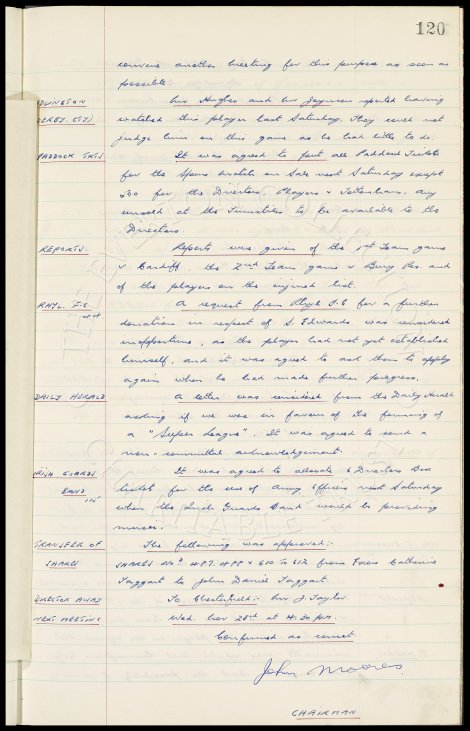 120
convene another meeting for this purpose as soon as
possible.
(DERBY CTY) Mr Hughes and Mr reported having
watched this player last Saturday. They could not
judge him on this game as he had little to do.
PADDOCK TKTS. It was agreed to put all Paddock Tickets
for the Spurs match on sale next Saturday except
for the Directors, Players & Tottenham. Any
unsold at the Turnstiles to be available to the
Directors.
REPORTS. Reports were given of the 1st Team game
v Cardiff, the 2nd Team game v Bury Res. and
of the players on the injured list.
RHYL F.C. A request from Rhyl F.C for a further
donation in respect of S. Edwards was considered
inopportune, as the player had not yet established
himself, and it was agreed to ask them to apply
again when he had made further progress.
DAILY HERALD A letter was considered from the Daily Herald
asking if we were in favour of the forming of
a "Super League". It was agreed to send a
non-committal acknowledgement.
IRISH GUARDS It was agreed to allocate 6 Directors Box
BAND tickets for the use of Army Officers next Saturday
when the Irish Guards Band would be providing
music.
TRANSFER OF The following was approved:-
SHARES SHARES Nos from Catherine
Taggart to John Daniel Taggart.
DIRECTOR AWAY To Chesterfield:- Mr J. Taylor
NEXT MEETING Wed. Nov 23rd at 4.30 p.m.
Confirmed as correct
John Moores
CHAIRMAN